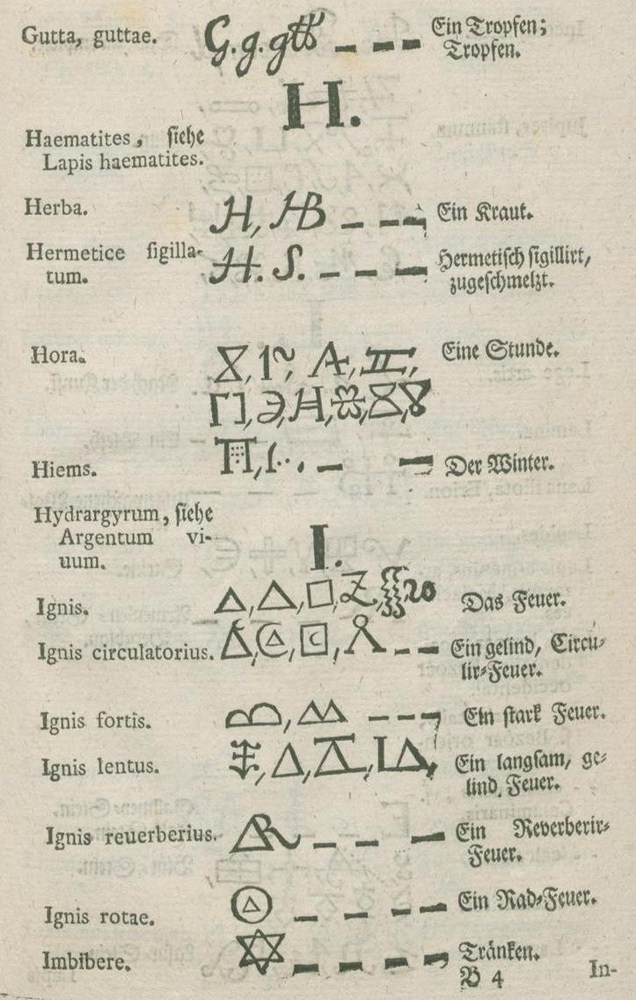 Gutta, guttae. G. g. gtt Ein Tropfen;
Tropfen.
H.
Haematites, ſiehe
Lapis haematites.
Herba. H, HB Ein Kraut.
Hermetice ſigilla- H. S. Hermetiſch ſigillirt,
tum. zugeſchmelzt.
Hora. Eine Stunde.
Hiems. Der Winter.
Hydrargyrum, ſiehe
Argentum vi-
uum.
I.
Ignis. △, △, □, Das Feuer.
Ignis circulatorius. Ein gelind, Circu-
lir-Feuer.
Ignis fortis. Ein ſtark Feuer.
Ignis lentus. Ein langſam, ge-
lind, Feuer.
Ignis reuerberius. Ein Reverberir-
Feuer.
Ignis rotae. Ein Rad-Feuer.
Imbibere. Tränken.
B 4 In-